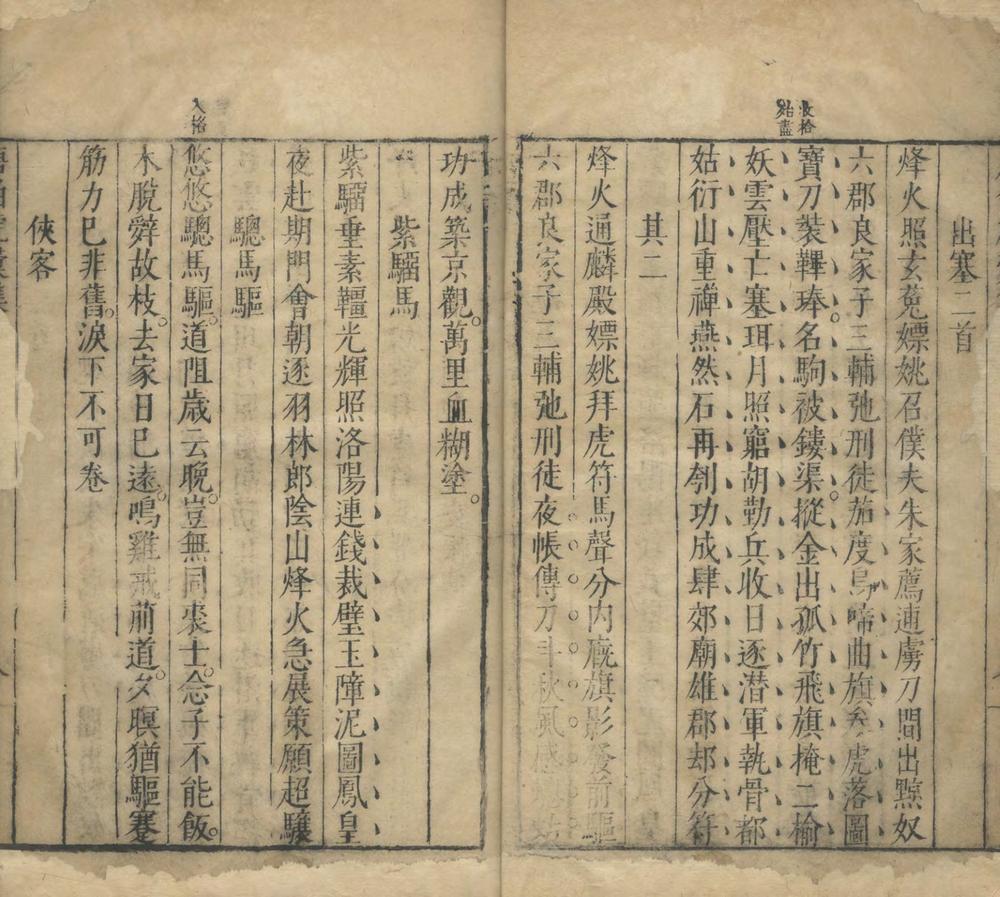 收拾
殆盡
出塞二首
烽火照玄菟嫖姚召僕夫朱家薦逋虜刀間出黥奴
六郡良家子三輔弛刑徒茄度烏啼曲旗參虎落圖
寶刀裝鞸琫名駒被鏤渠摐金出孤竹飛旗掩二榆
妖雲壓亡塞珥月照窮胡勒兵收日逐潛軍執骨都
姑衍山重禪燕然石再刳功成肆郊廟雄郡却分符
其二
烽火通麟殿嫖姚拜虎符馬聲分內廐旗影發前驅
六郡良家子三輔弛刑徒夜帳傳刀斗秋風感
功成築京觀萬里血糊塗
紫騮馬
紫騮垂素韁光輝照洛陽連錢裁璧玉障泥圖鳳皇
夜赴期門會朝逐羽林郎陰山烽火急展策願超驤
驄馬驅
入格
悠悠驄馬驅道阻歲云晚豈無同裘士念子不能飯
木脫辤故枝去家日已遠鳴雞戒前道夕暝猶驅蹇
筋力已非舊淚下不可卷
俠客